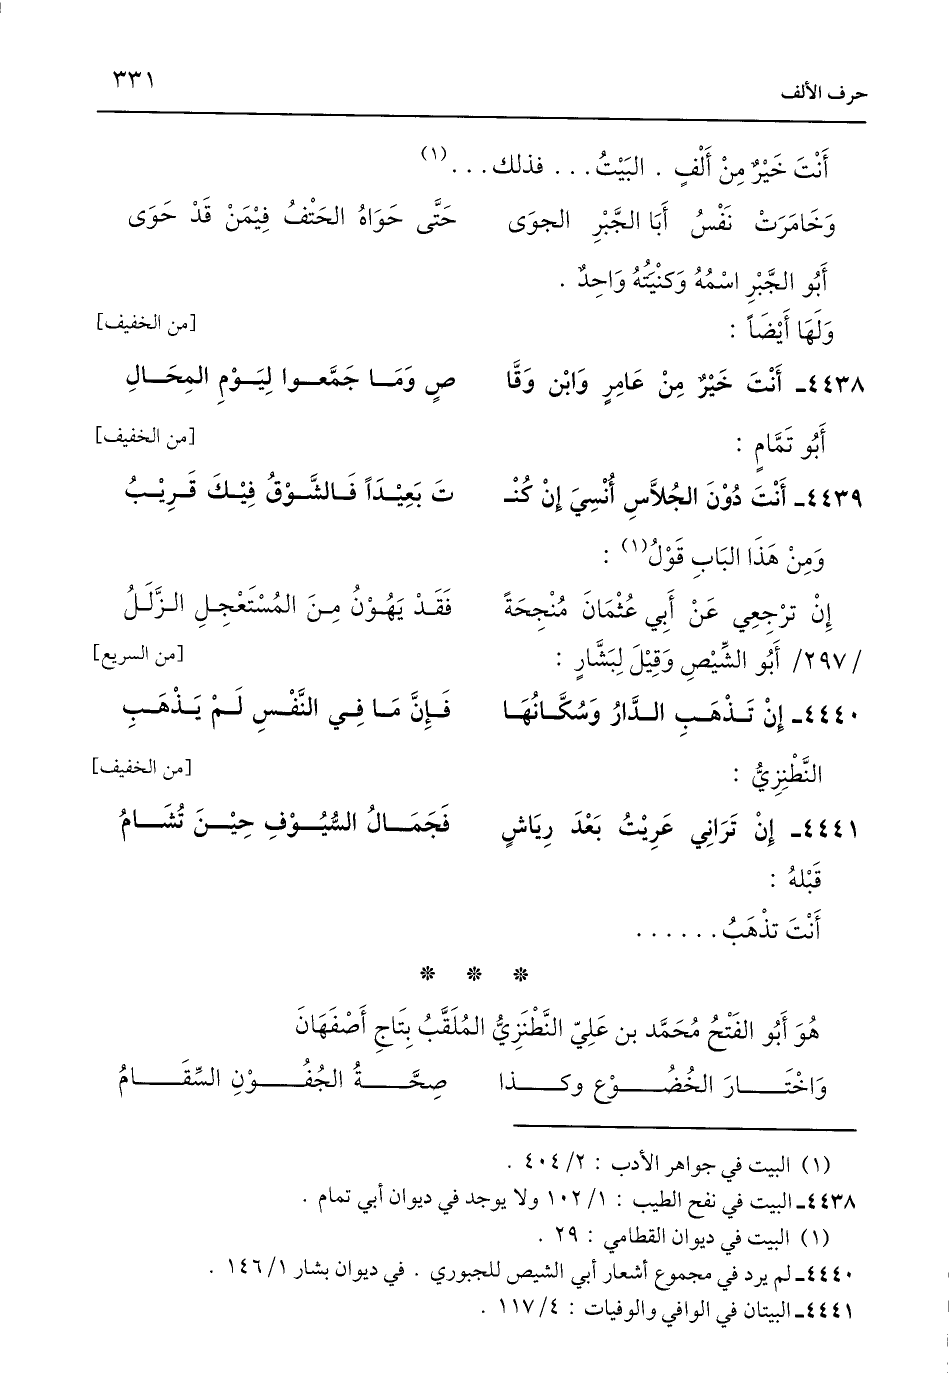 حرف الألف ٣٣١
أَنْتَ خَيْرٌ مِنْ أَلْفٍ . البَيْتُ . . . فذلك . . .(١)
وَخَامَرَتْ نَفْسُ أَبَا الجَّبْرِ الجوَى حَتَّى حَوَاهُ الحَتْفُ فِيْمَنْ قَدْ حَوَى
أَبُو الجَّبْرِ اسْمُهُ وَكُنْيَتُهُ وَاحِدٌ .
وَلَهَا أَيْضَاً : [من الخفيف]
٤٤٣٨ـ أَنْتَ خَيْرٌ مِنْ عَامِرٍ وَابْن وَقَّا صٍ وَمَا جَمَّعوا لِيَوْمِ المِحَالِ
أَبُو تَمَّامٍ : [من الخفيف]
٤٤٣٩ـ أَنْتَ دُوْنَ الجُلاَّسِ أُنْسِيَ إِنْ كُنْـ ـتَ بَعِيْدَاً فَالشَّوْقُ فِيْكَ قَرِيْبُ
وَمِنْ هَذَا البَابِ قَوْلُ(١) :
إِنْ تَرْجِعِي عَنْ أَبِي عُثْمَانَ مُنْجِحَةً فَقَدْ يَهُوْنُ مِنَ المُسْتَعْجِلِ الزَّلَلُ
/٢٩٧/ أَبُو الشِّيْصِ وَقِيْلَ لِبَشَّارٍ : [من السريع]
٤٤٤٠ـ إِنْ تَذْهَبِ الدَّارُ وَسُكَّانُهَا فَإِنَّ مَا فِي النَّفْسِ لَمْ يَذْهَبِ
النَّطْنِزِيُّ : [من الخفيف]
٤٤٤١ـ إِنْ تَرَانِي عَرِيْتُ بَعْدَ رِيَاشٍ فَجَمَالُ السُّيُوْفِ حِيْنَ تُشَامُ
قَبْلهُ :
أَنْتَ تذْهَبُ . . . . . .
* * *
هُوَ أَبُو الفَتْحُ مُحَمَّد بن عَلِيّ النَّطْنَزِيُّ المُلَقَّبُ بِتَاجِ أَصْفَهَانَ
وَاخْتَارَ الخُضُوْع وكذا صِحَّةُ الجُفُوْنِ السِّقَامُ
(١) البيت في جواهر الأدب : ٢/ ٤٠٤ .
٤٤٣٨ـ البيت في نفح الطيب : ١/ ١٠٢ ولا يوجد في ديوان أبي تمام .
(١) البيت في ديوان القطامي : ٢٩ .
٤٤٤٠ـ لم يرد في مجموع أشعار أبي الشيص للجبوري . في ديوان بشار ١/ ١٤٦ .
٤٤٤١ـ البيتان في الوافي والوفيات : ٤/ ١١٧ .